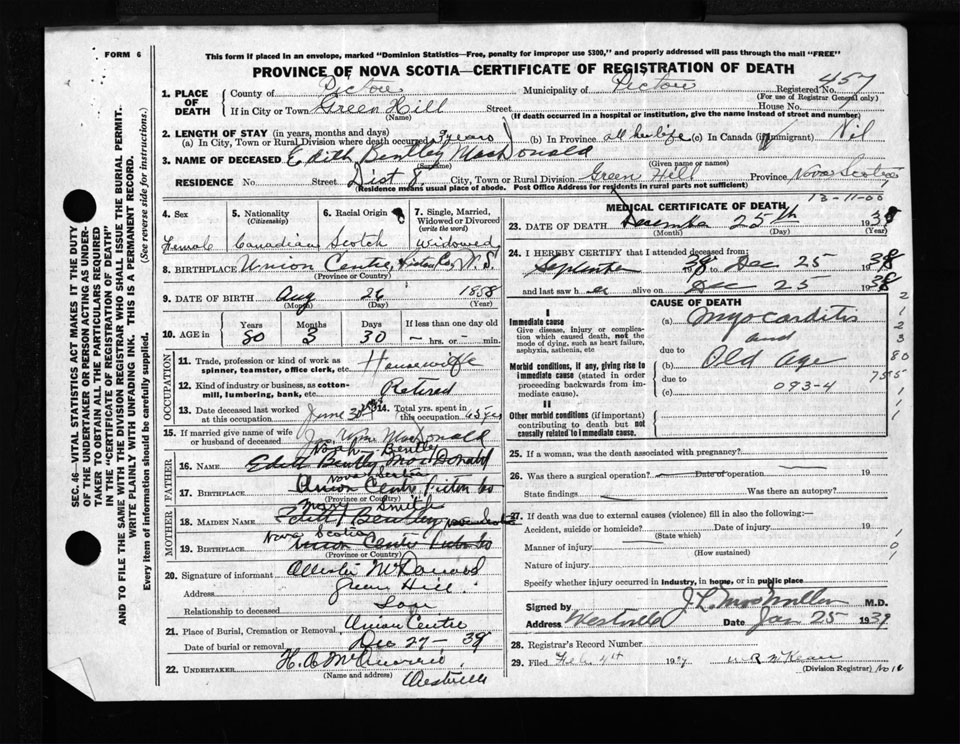 FORM 6
This form if placed in an envelope, marked "Dominion Statistics—Free, penalty for improper use $300," and properly addressed will pass through the mail "FREE"
PROVINCE OF NOVA SCOTIA—CERTIFICATE OF REGISTRATION OF DEATH
1. PLACE OF DEATH County of Pictou Municipality of Pictou Registered No. 457
(For use of Registrar General only)
If in City or Town Green Hill Street House No.
(Name) (If death occurred in a hospital or institution, give the name instead of street and number)
2. LENGTH OF STAY (in years, months and days)
(a) In City, Town or Rural Division where death occurred 9 years (b) In Province all her life (c) In Canada (if immigrant) Nil
3. NAME OF DECEASED Edith Bentley MacDonald
(Surname) (Given name or names)
RESIDENCE No. Street Dist 8. City, Town or Rural Division Green Hill Province Nova Scotia
(Residence means usual place of abode. Post Office Address for residents in rural parts not sufficient)
13-11-00
4. Sex Female
5. Nationality (Citizenship) Canadian
6. Racial Origin Scotch
7. Single, Married, Widowed or Divorced (write the word) Widowed
8. BIRTHPLACE Union Centre, Pictou Co, N.S.
(Province or Country)
9. DATE OF BIRTH Aug 26 1858
(Month) (Day) (Year)
10. AGE in Years Months Days If less than one day old
80 3 30 — hrs. or — min.
OCCUPATION
11. Trade, profession or kind of work as spinner, teamster, office clerk, etc. Housewife
12. Kind of industry or business, as cotton-mill, lumbering, bank, etc. Retired
13. Date deceased last worked at this occupation June 30
14. Total yrs. spent in this occupation 45 yrs
15. If married give name of wife or husband of deceased MacDonald
FATHER
Noah Bentley
16. NAME Edith Bentley MacDonald
Nova Scotia
17. BIRTHPLACE Union Centre Pictou Co
(Province or Country)
MOTHER
Mary Smith
18. MAIDEN NAME Edith Bentley
Nova Scotia
19. BIRTHPLACE Union Centre Pictou Co
(Province or Country)
20. Signature of informant McDonald
Address Green Hill
Relationship to deceased Son
21. Place of Burial, Cremation or Removal Union Centre
Date of burial or removal Dec 27 - 38
22. UNDERTAKER H. A.
(Name and address) Westville
MEDICAL CERTIFICATE OF DEATH
23. DATE OF DEATH December 25th 1938
(Month) (Day) (Year)
24. I HEREBY CERTIFY that I attended deceased from:
September 38 to Dec 25 1938
and last saw h er alive on Dec 25 1938
CAUSE OF DEATH
I
Immediate cause
Give disease, injury or complication which caused death, not the mode of dying, such as heart failure, asphyxia, asthenia, etc
(a) Myocarditis
and
due to
Morbid conditions, if any, giving rise to immediate cause (stated in order proceeding backwards from immediate cause).
(b) Old Age
due to
093-4
(c)
II
Other morbid conditions (if important) contributing to death but not causally related to immediate cause.
25. If a woman, was the death associated with pregnancy?
26. Was there a surgical operation? Date of operation 19
State findings Was there an autopsy?
27. If death was due to external causes (violence) fill in also the following:—
Accident, suicide or homicide? Date of injury 19
(State which)
Manner of injury
(How sustained)
Nature of injury
Specify whether injury occurred in industry, in home, or in public place
Signed by J. L. MacMillan M.D.
Address Westville Date Jan 25 1939
28. Registrar's Record Number
29. Filed Feb 4th 19
(Division Registrar)
SEC. 46—VITAL STATISTICS ACT MAKES IT THE DUTY OF THE UNDERTAKER OR PERSON ACTING AS UNDERTAKER TO OBTAIN ALL THE PARTICULARS REQUIRED IN THE "CERTIFICATE OF REGISTRATION OF DEATH"
AND TO FILE THE SAME WITH THE DIVISION REGISTRAR WHO SHALL ISSUE THE BURIAL PERMIT.
WRITE PLAINLY WITH UNFADING INK. THIS IS A PERMANENT RECORD.
Every item of information should be carefully supplied. (See reverse side for instructions.)